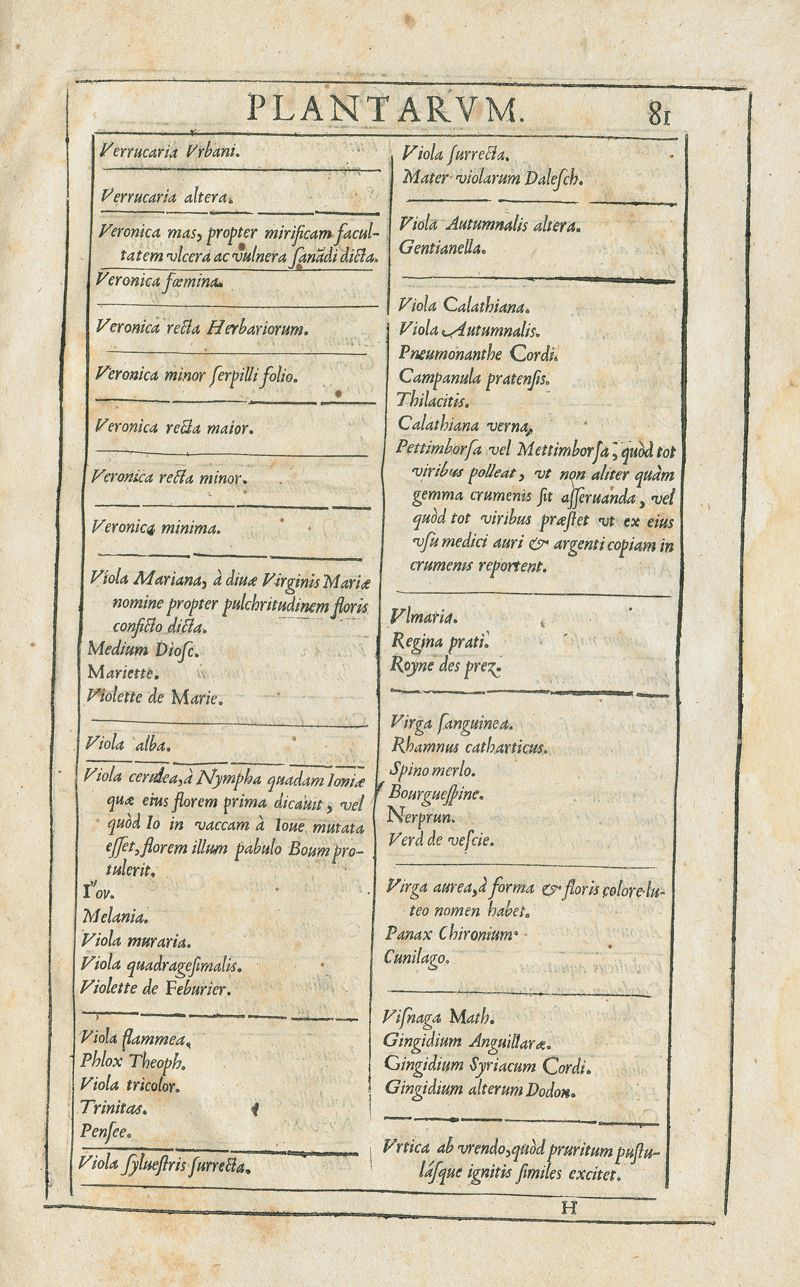 PLANTARVM. 81
Verrucaria Vrbani.
Verrucaria altera.
Veronica mas, propter mirificam facul-
tatem vlcera ac vulnera ſanãdi dicta.
Veronica fœmina.
Veronica recta Herbariorum.
Veronica minor ſerpilli folio.
Veronica recta maior.
Veronica recta minor.
Veronica minima.
Viola Mariana, à diuæ Virginis Mariæ
nomine propter pulchritudinem floris
conficto dicta.
Medium Dioſc.
Mariette.
Violette de Marie.
Viola alba.
Viola cerulea, à Nympha quadam Ioniæ
quæ eius florem prima dicauit, vel
quòd Io in vaccam à Ioue mutata
eſſet, florem illum pabulo Boum pro-
tulerit.
Ἴον.
Melania.
Viola muraria.
Viola quadrageſimalis.
Violette de Feburier.
Viola flammea.
Phlox Theoph.
Viola tricolor.
Trinitas.
Penſee.
Viola ſylueſtris ſurrecta.
Viola ſurrecta.
Mater violarum Daleſch.
Viola Autumnalis altera.
Gentianella.
Viola Calathiana.
Viola Autumnalis.
Pneumonanthe Cordi.
Campanula pratenſis.
Thilacitis.
Calathiana verna,
Pettimborſa vel Mettimborſa, quòd tot
viribus polleat, vt non aliter quàm
gemma crumenis ſit aſſeruanda, vel
quòd tot viribus præſtet vt ex eius
vſu medici auri & argenti copiam in
crumenis reportent.
Vlmaria.
Regina prati.
Royne des prez.
Virga ſanguinea.
Rhamnus catharticus.
Spino merlo.
Bourgueſpine.
Nerprun.
Verd de veſcie.
Virga aurea, à forma & floris colore lu-
teo nomen habet.
Panax Chironium.
Cunilago.
Viſnaga Math.
Gingidium Anguillaræ.
Gingidium Syriacum Cordi.
Gingidium alterum Dodon.
Vrtica ab vrendo, quòd pruritum puſtu-
láſque ignitis ſimiles excitet.
H